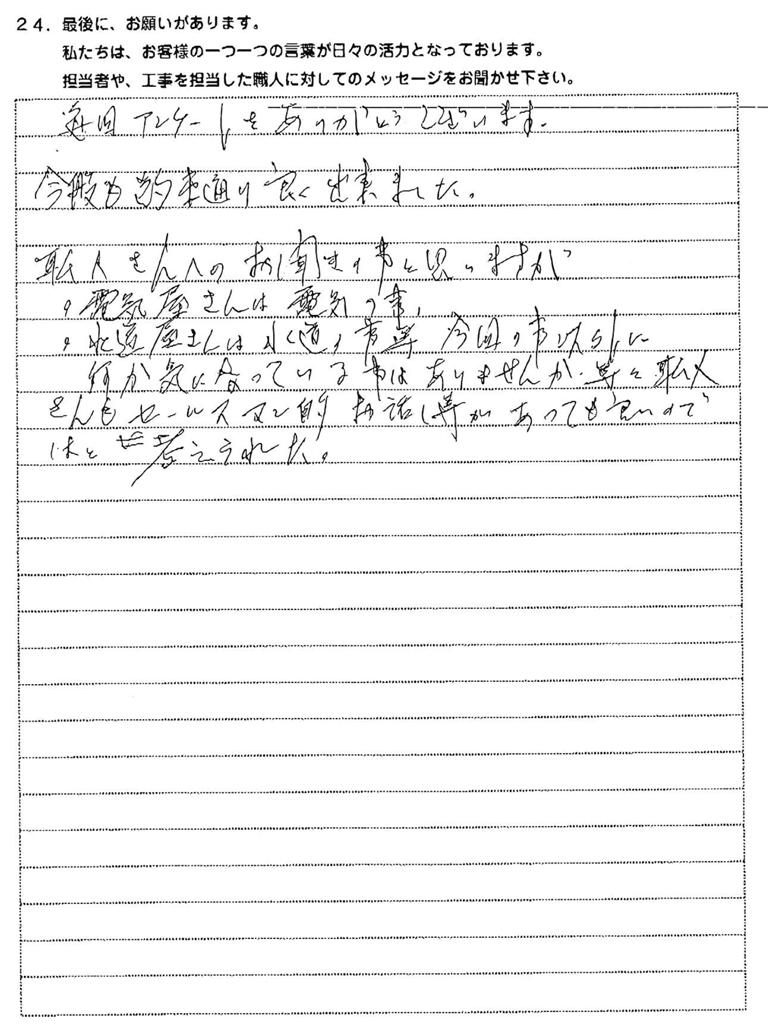 24．最後に、お願いがあります。
私たちは、お客様の一つ一つの言葉が日々の活力となっております。
担当者や、工事を担当した職人に対してのメッセージをお聞かせ下さい。
毎回アンケートをありがとうございます。
今般も約束通り良く出来ました。
職人さんへのお聞きの事と思いますが
・電気屋さんは電気の事、
・水道屋さんは水道の事等 今回の事以外に
何か気になっている事はありませんか 等々職人
さんもセールスマン的お話し等があっても良いので
はと 考えられた。